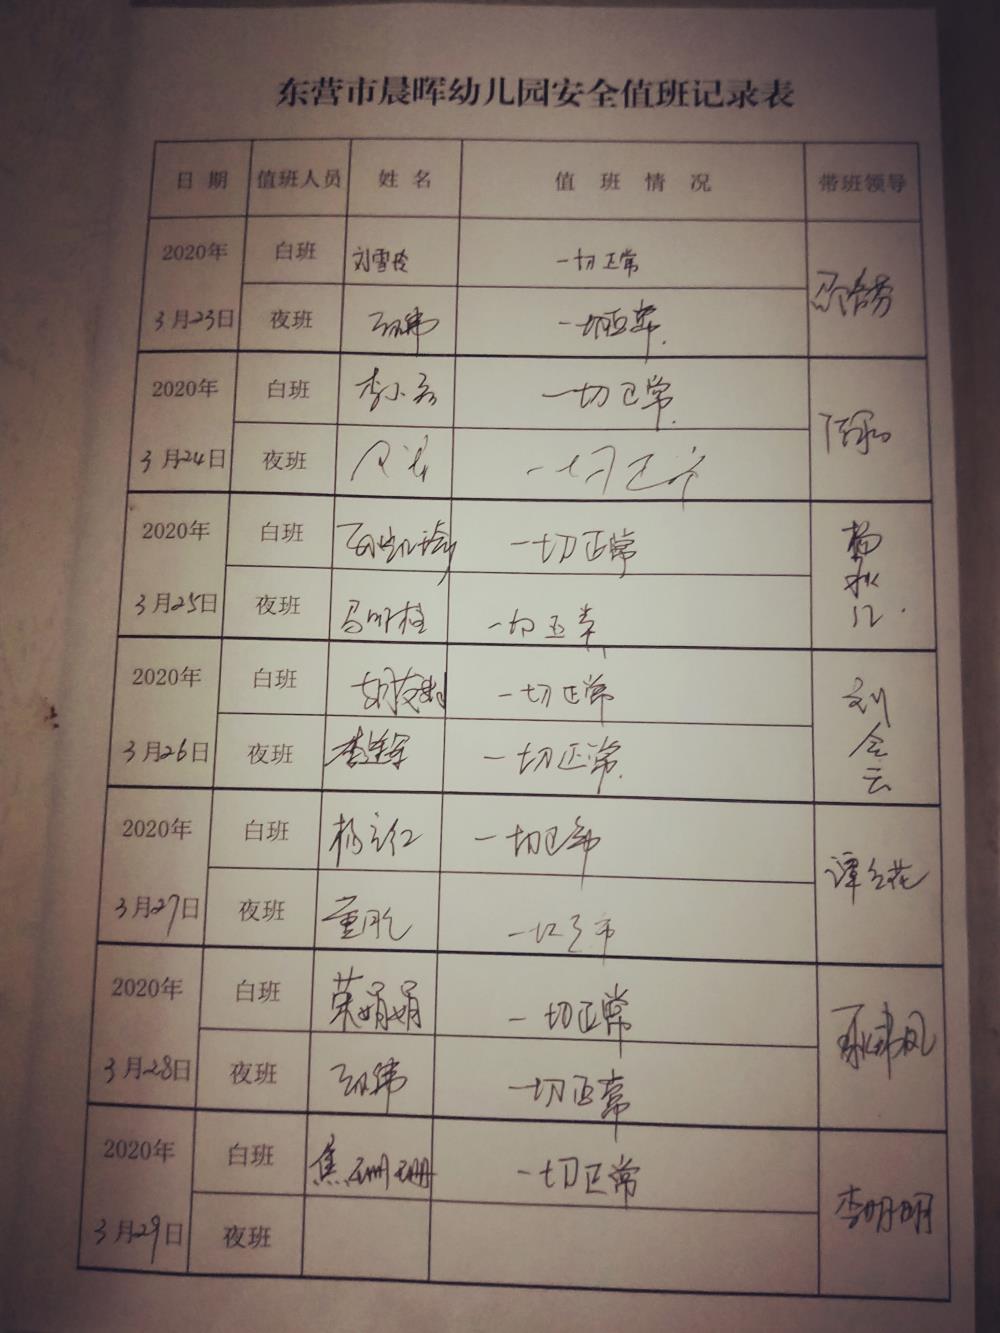 东营市晨晖幼儿园安全值班记录表
日期 值班人员 姓名 值班情况 带班领导
2020年 白班 刘雪玲 一切正常
3月23日 夜班 一切正常
2020年 白班 一切正常
3月24日 夜班 一切正常
2020年 白班 一切正常 杨秋江
3月25日 夜班 一切正常
2020年 白班 一切正常 刘会云
3月26日 夜班 一切正常
2020年 白班 杨立红 一切正常 谭立花
3月27日 夜班 董凯 一切正常
2020年 白班 荣娟娟 一切正常
3月28日 夜班 一切正常
2020年 白班 焦珊珊 一切正常 李明明
3月29日 夜班